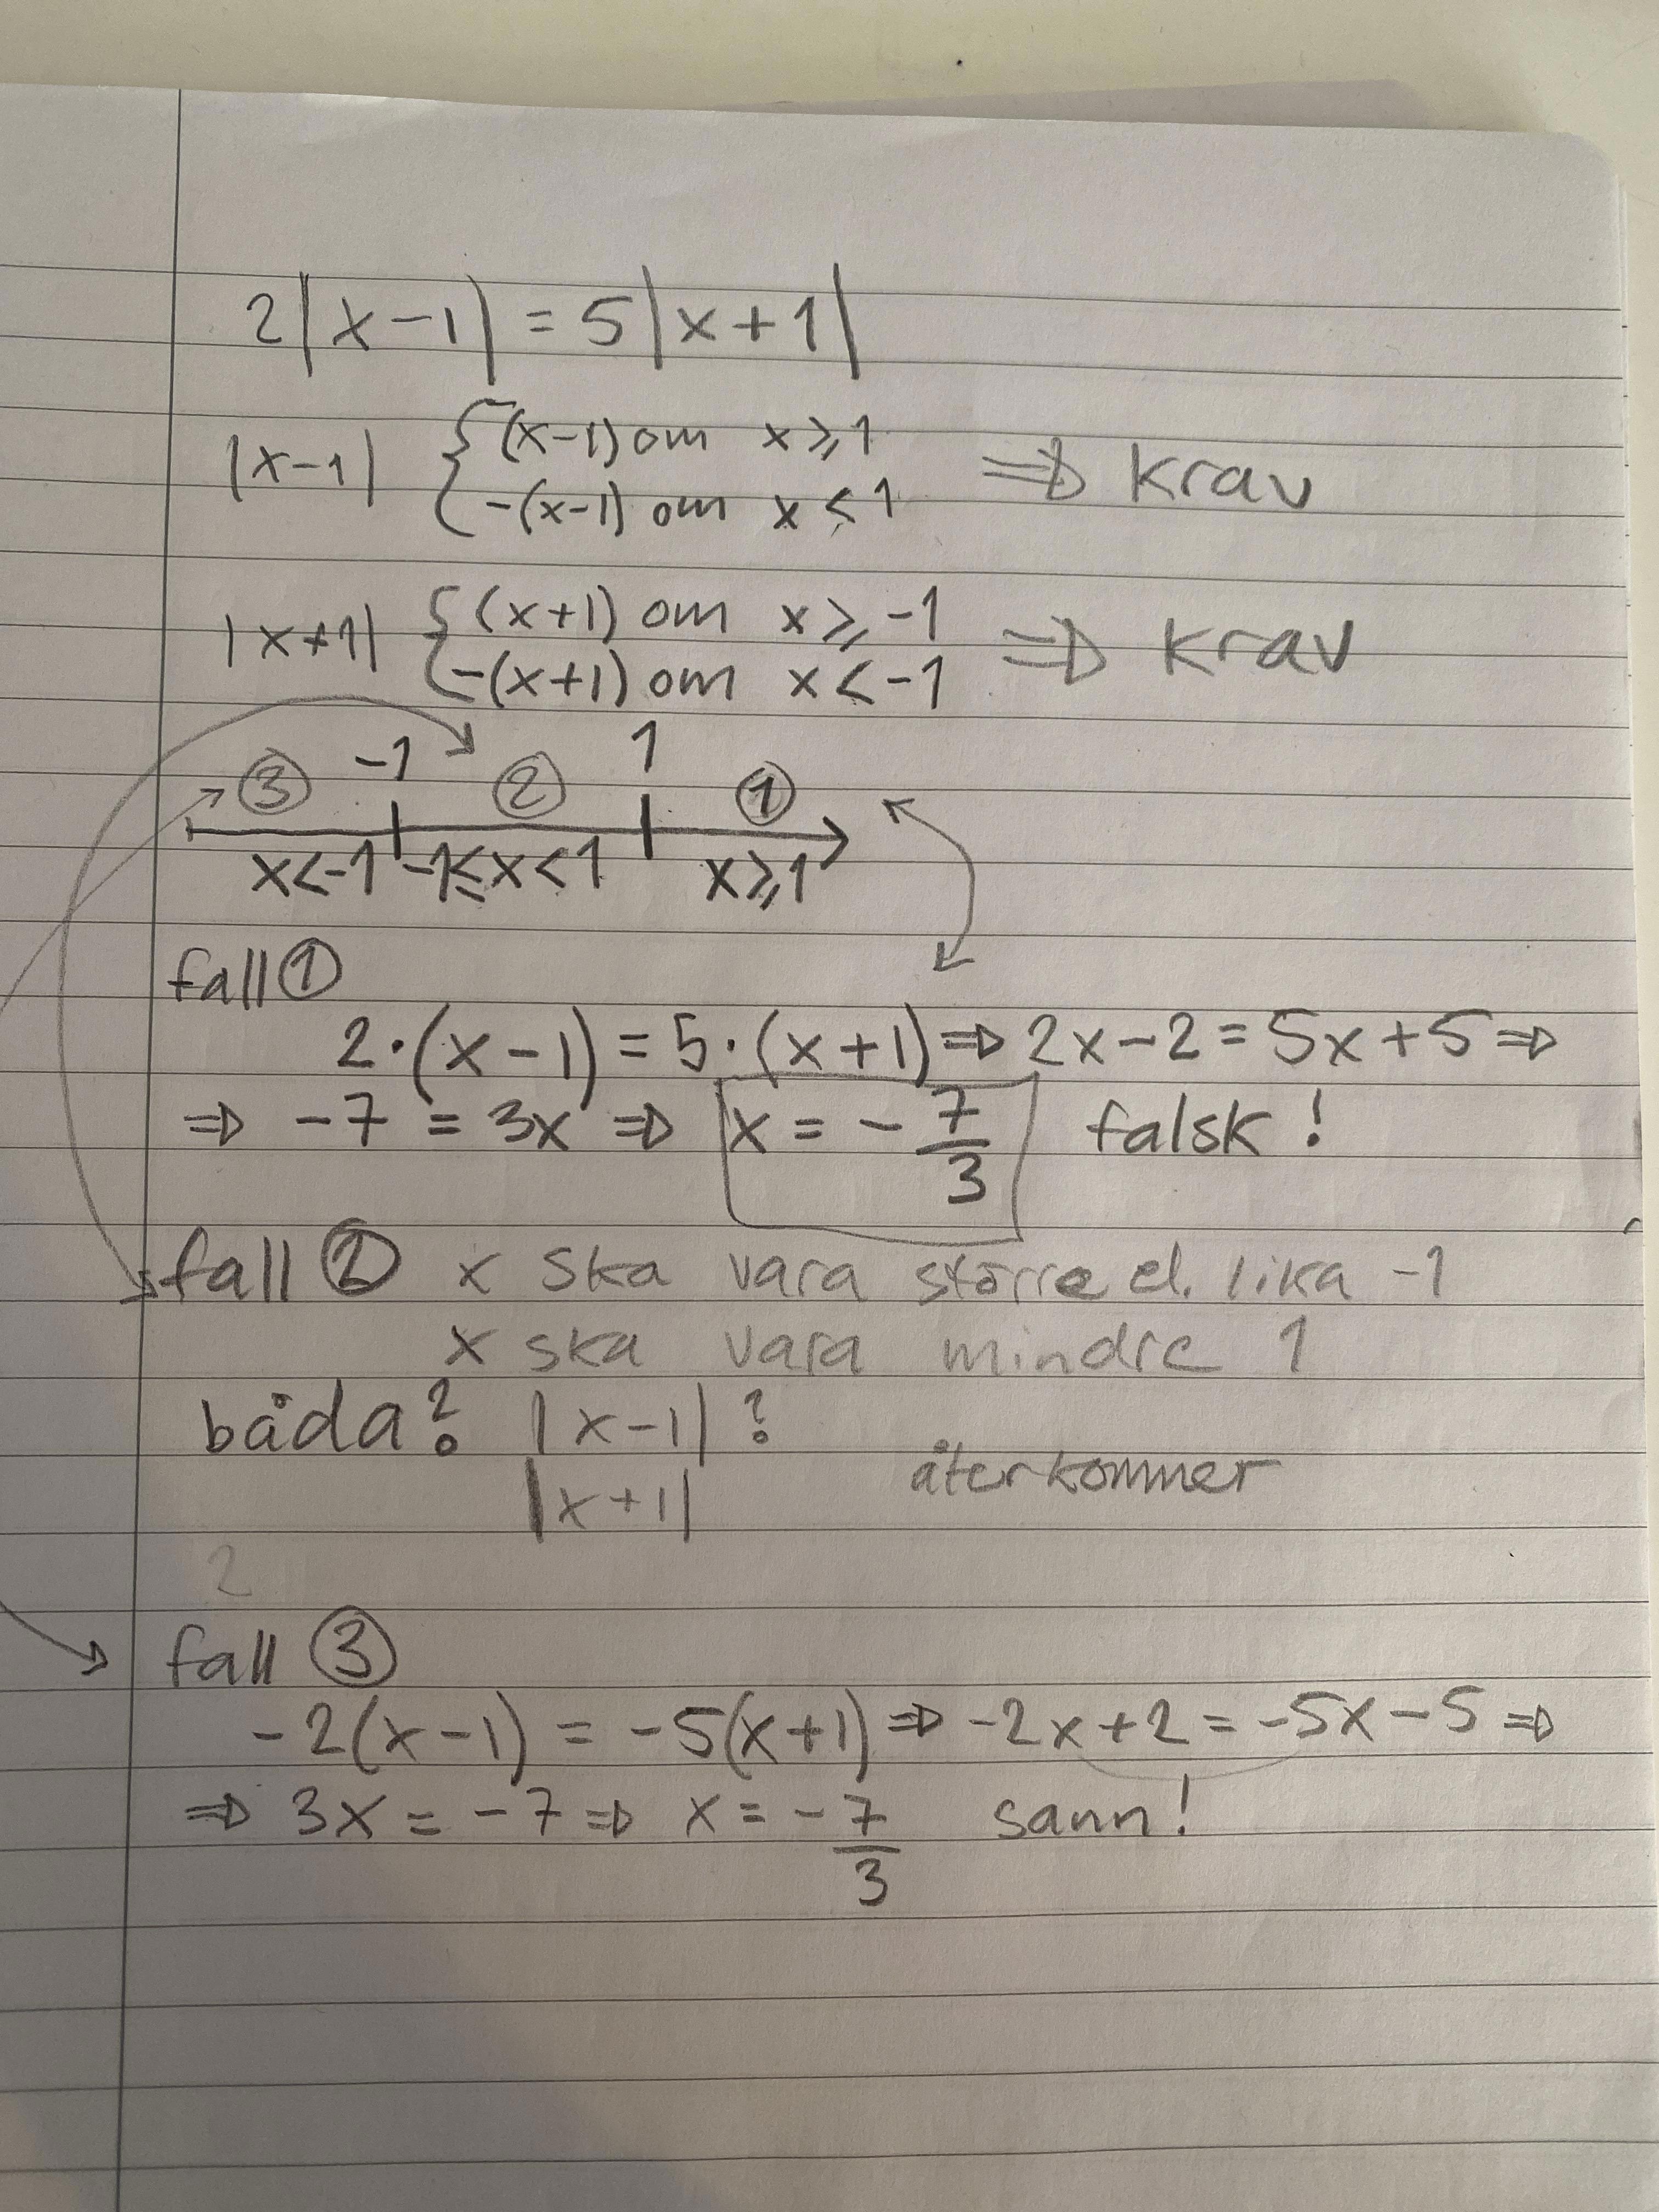 2|x-1| = 5|x+1|
|x-1| { (x-1) om x ⩾ 1
-(x-1) om x < 1 ⇒ krav
|x+1| { (x+1) om x ⩾ -1
-(x+1) om x < -1 ⇒ krav
-1 1
③ ② ①
x<-1 -1≤x<1 x⩾1
fall ①
2·(x-1) = 5·(x+1) ⇒ 2x-2 = 5x+5 ⇒
⇒ -7 = 3x ⇒ x = -7/3 falsk!
fall ② x ska vara större el. lika -1
x ska vara mindre 1
båda? |x-1| ?
|x+1| återkommer
2
fall ③
-2(x-1) = -5(x+1) ⇒ -2x+2 = -5x-5 ⇒
⇒ 3x = -7 ⇒ x = -7/3 sann!